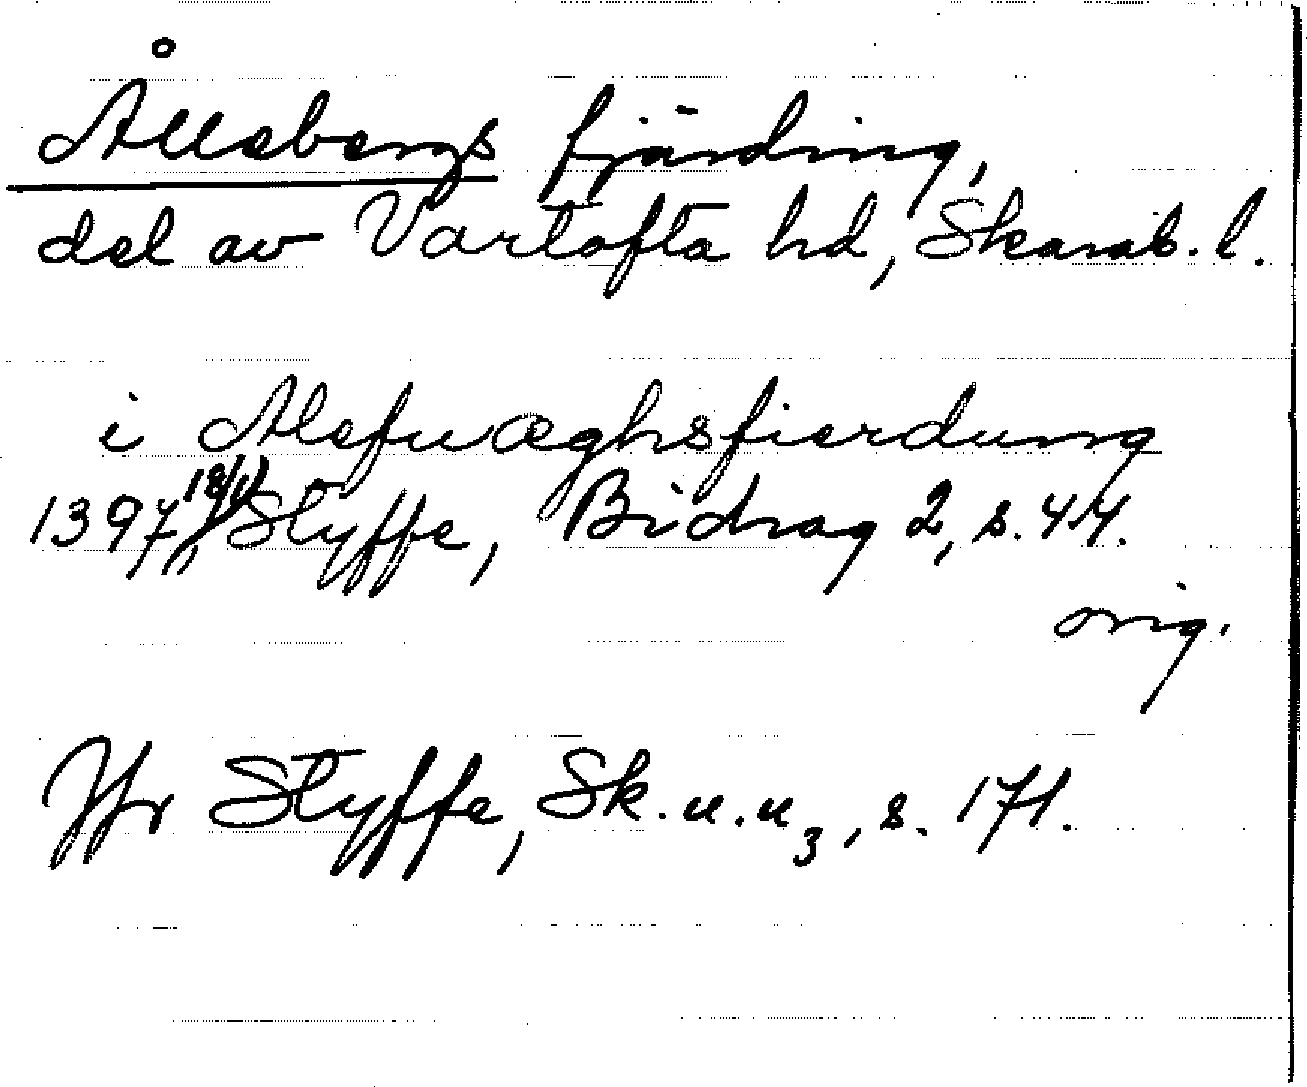 Ållebergs fjärding,
del av Vartofta hd, Skarab. l.
i Alefwæghsfierdung
1397 18/1) Styffe, Bidrag 2, s. 44.
orig.
Jfr Styffe, Sk. u. u 3, s. 171.